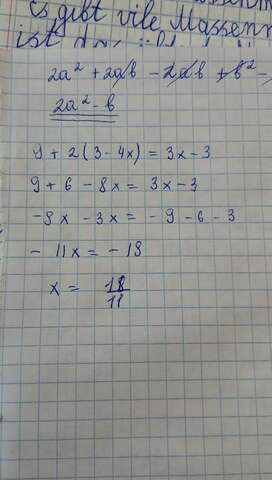 es gibt vile Massenm
ist
2a² + 2ab - 2ab + b² -
2a² - b
9 + 2(3 - 4x) = 3x - 3
9 + 6 - 8x = 3x - 3
-8x - 3x = -9 - 6 - 3
- 11x = - 18
x = 18/11